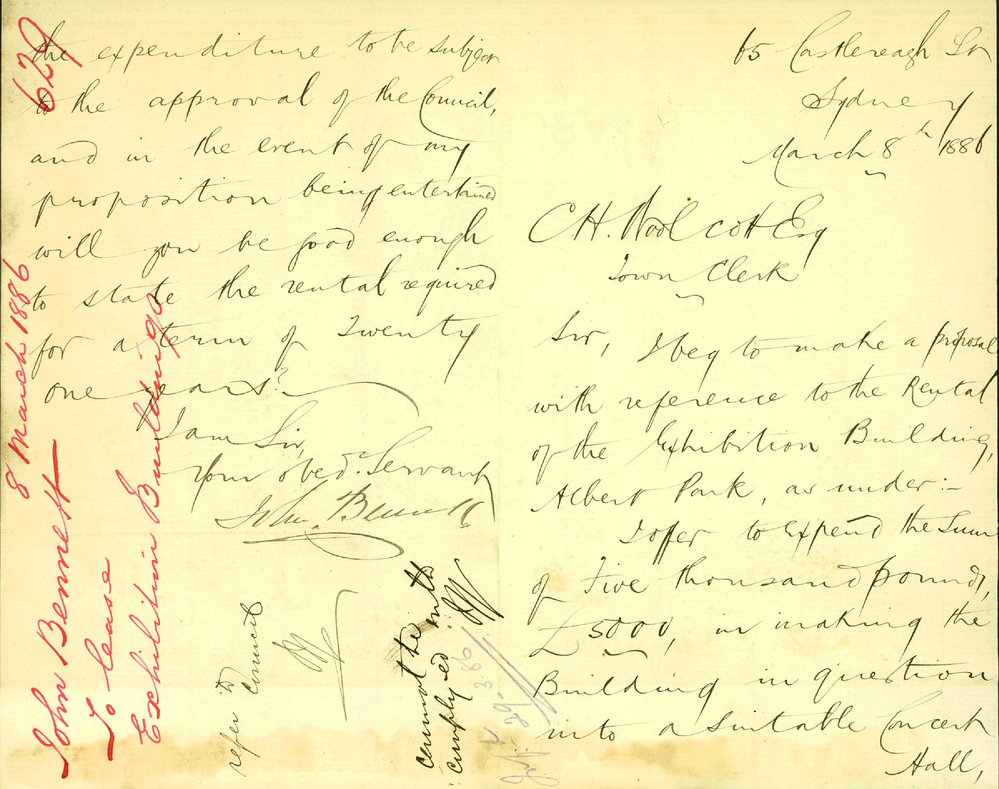 65 Castlereagh St
Sydney
March 8th 1886
C.H. Woolcott Esq
Town Clerk
Sir, I beg to make a proposal
with reference to the Rental
of the Exhibition Building,
Albert Park, as under:-
I offer to Expend the Sum
of Five thousand pounds,
£5000, in making the
Building in question
into a suitable Concert
Hall,
the expenditure to be subject
to the approval of the Council,
and in the event of my
proposition being entertained
will you be good enough
to state the rental required
for a term of Twenty
one years?
I am Sir,
Your obed. Servant
John Bennett
refer to
Council
cannot be
complyed with
29.3.86
629
8 March 1886
John Bennett
To lease
Exhibition Buildings